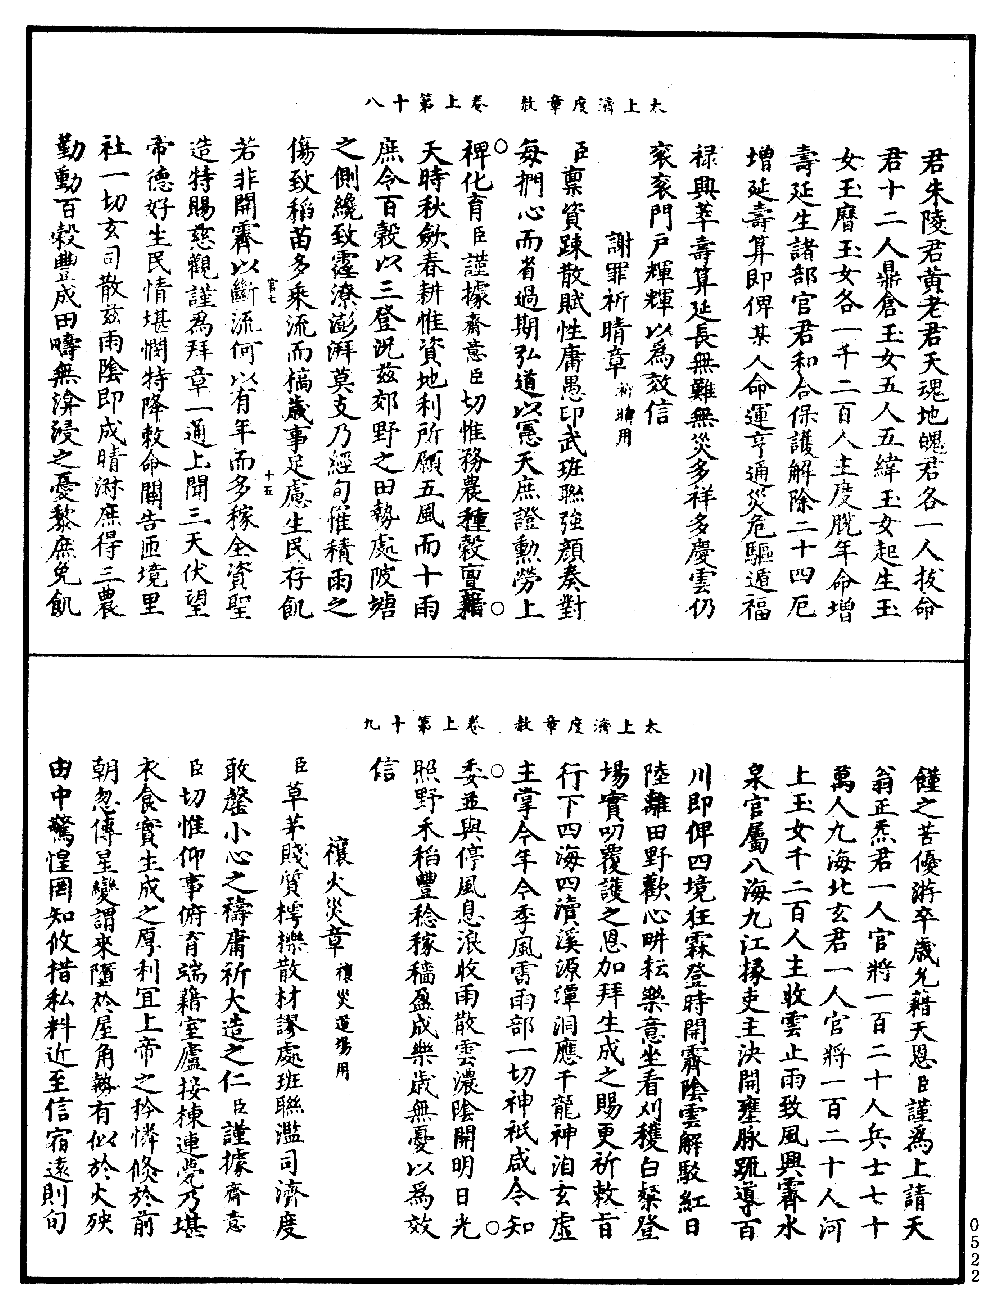 太上濟度章赦　卷上第十八
君朱陵君黃老君天魂地魄君各一人拔命
君十二人鼎倉玉女五人五緯玉女起生玉
女玉曆玉女各一千二百人主度脫年命增
壽延生諸部官君和合保護解除二十四厄
增延壽算即俾某人命運亨通災危驅遁福
祿興萃壽算延長無難無災多祥多慶雲仍
袞袞門戶輝輝以為效信
謝罪祈晴章祈晴用
臣稟資踈散賦性庸愚叨武班聯強顏奏對
每捫心而省過期弘道以憲天庶證勳勞上
裨化育臣謹據齋意臣切惟務農種穀亶藉
天時秋斂春耕惟資地利所願五風而十雨
庶令百穀以三登況茲郊野之田勢處陂塘
之側纔致霪潦澎湃莫支乃經旬催積雨之
傷致稻苗多乘流而槁歲事足慮生民存飢
若非開霽以斷流何以有年而多稼全資聖
官七　十五
造特賜慈觀謹為拜章一通上聞三天伏望
帝德好生民情堪憫特降敕命關告匝境里
社一切玄司散茲雨陰即成晴澍庶得三農
勤動百穀豐成田疇無渰浸之憂黎庶免飢
太上濟度章赦　卷上第十九
饉之苦優游卒歲允藉天恩臣謹為上請天
翁正炁君一人官將一百二十人兵士七十
萬人九海北玄君一人官將一百二十人河
上玉女千二百人主收雲止雨致風興霽水
泉官屬八海九江掾吏主決開壅脉疏導百
川即俾四境狂霖登時開霽陰雲解駁紅日
陸離田野歡心畊耘樂意坐看刈穫白粲登
場實叨覆護之恩加拜生成之賜更祈敕旨
行下四海四瀆溪源潭洞應干龍神洎玄虛
主掌今年今季風雷雨部一切神祇咸令知
委並與停風息浪收雨散雲濃陰開明日光
照野禾稻豐稔稼穡盈成樂歲無憂以為效
信
禳火災章禳災道場用
臣草茅賤質樗櫟散材謬處班聯濫司濟度
敢罄小心之禱庸祈大造之仁臣謹據齋意
臣切惟仰事俯育端藉室廬接棟連甍乃堪
衣食實生成之厚利冝上帝之矜憐倏於前
朝忽傳星變謂來墮於屋角勢有似於火殃
由中驚惶罔知攸措私料近至信宿遠則旬
0522